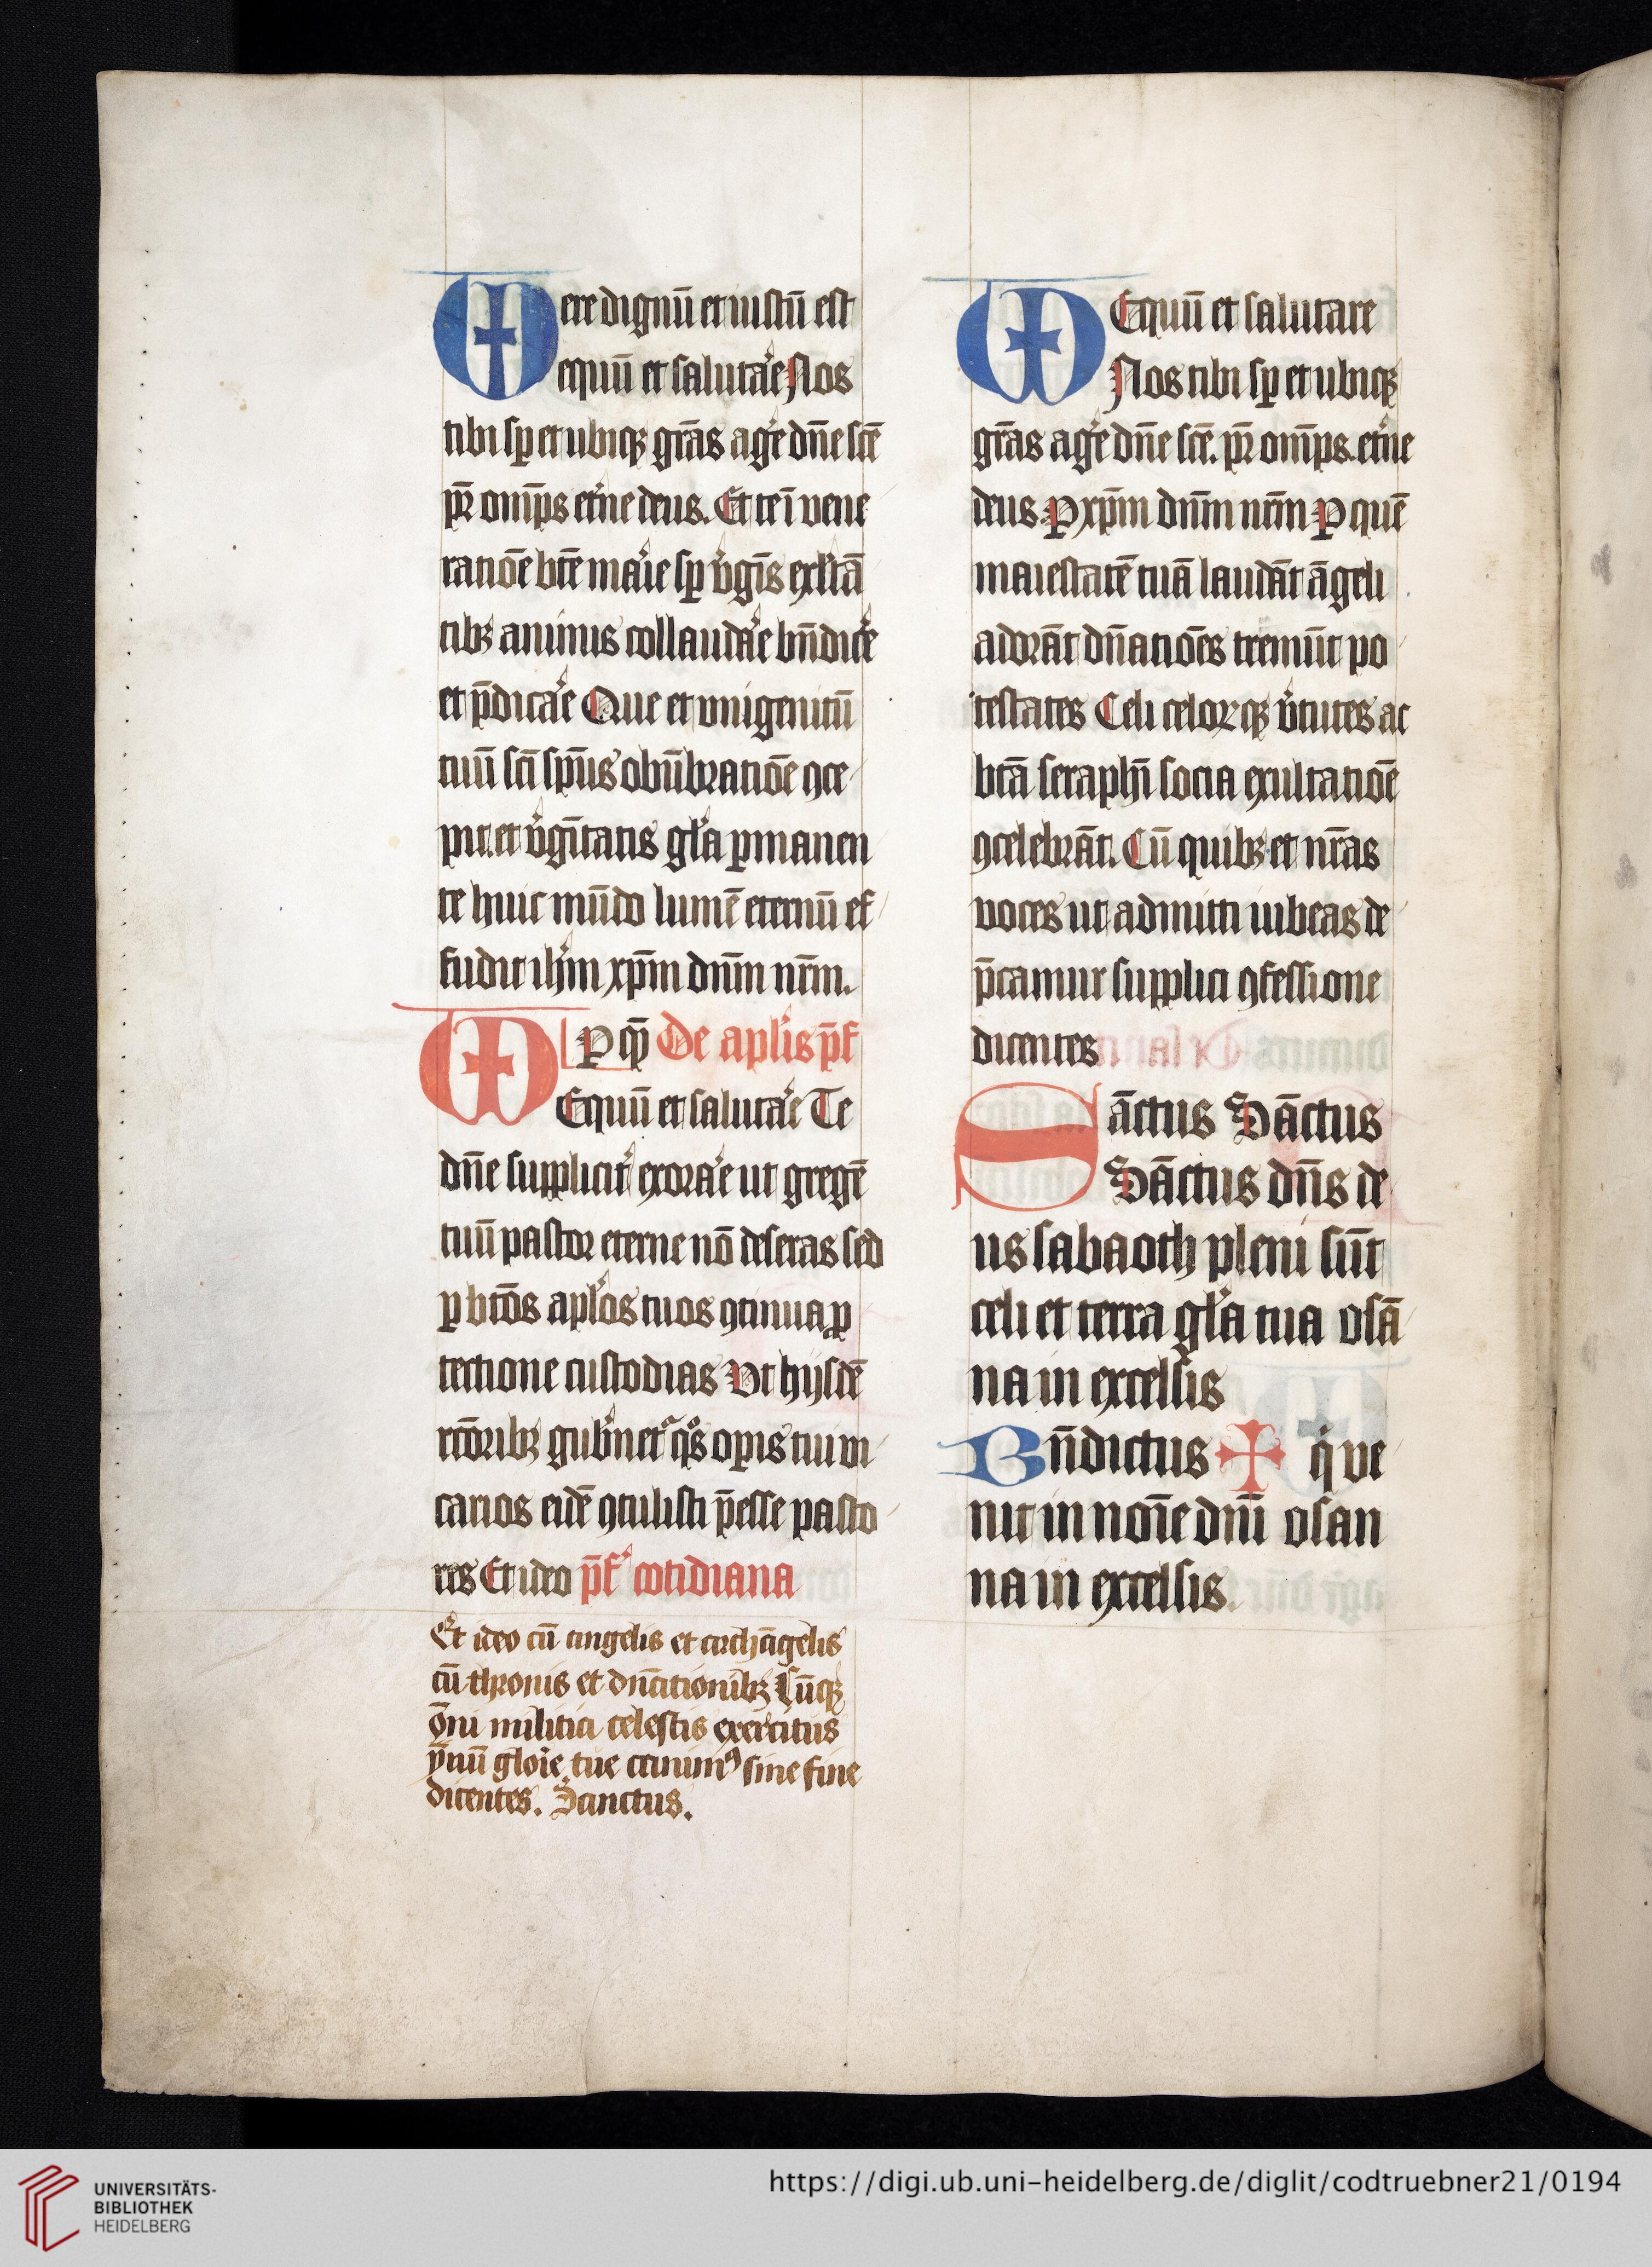 Vere dignū et iustū est
equū et salutar̉e Nos
tibi sp̲ et ubiqꝫ gr̄as ag̉e dn̄e sc̄e
pr̄ om̄ps et̉ne deus. Et te ī vene
ratiōe bt̄e mar̉ie sp̲ v̉gīs exl̉tā
tibꝫ animis collaudar̉e bn̄dic̉e
et p̄dicar̉e Que et vnigenitū
tuū sc̄i sp̄us obūbratiōe ꝯce
pit. et v̉gīitatis gl̉a ꝑmanen
te huic mūdo lumē eternū ef
fudit ih̄m xp̄m dn̄m nr̄m.
ꝑ qē De apl̉is p̄f
VD Equū et salutar̉e Te
dn̄e supplicit̉ exorar̉e ut gregē
tuū pastor eterne nō deseras sed
ꝑ bt̄os apl̉os tuos ꝯtinua ꝓ
tectione custodias Vt hijsdē
rc̄oribꝫ gub̉net̉ qͦs oꝑis tui vi
carios eidē ꝯtulisti p̄esse pasto
res Et ideo p̄f̉ cotidiana
Et ideo cū angelis et archāgelis
cū thronis et dn̄ationibꝫ Cūqꝫ
ōni militia celestis exercitus
ȳnū gloīe tue canimꝰ sine fine
dicentes. Sanctus.
VD Equū et salutare
Nos tibi sp̲ et ubiqꝫ
gr̄as ag̉e dn̄e sc̄e. pr̄ om̄ps. et̉ne
deus ꝑ xp̄m dn̄m nr̄m ꝑ quē
maiestatē tuā laudāt āgeli
adorāt dn̄atiōes tremūt po
testates Celi celorꝫqꝫ v̉tutes ac
btā seraphī socia exultatiōe
ꝯcelebrāt. Cū quibꝫ et nr̄as
voces ut admitti iubeas de
p̄camur supplici ꝯfessione
dicentes
Sāctus Sāctus
Sāctus dn̄s de
us sabaoth pleni sūt
celi et terra gl̉a tua osā
na in excelsis
Bn̄dictus ✠ q̉ ve
nit in noīe dn̄i osan
na in excelsis.
UNIVERSITÄTS-
BIBLIOTHEK
HEIDELBERG
https://digi.ub.uni-heidelberg.de/diglit/codtruebner21/0194